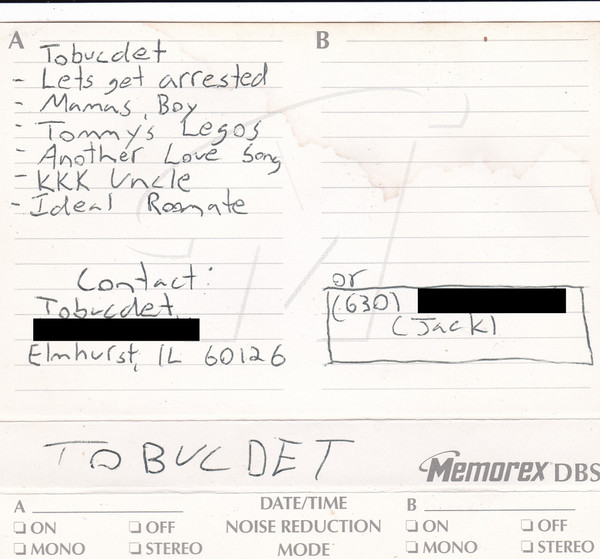 A
Tobucdet
- Lets get arrested
- Mamas Boy
- Tommys Legos
- Another Love Song
- KKK Uncle
- Ideal Roomate
Contact:
Tobucdet
Elmhurst, IL 60126
B
or
(630)
(Jack)
TOBUCDET
Memorex DBS
A DATE/TIME B
ON OFF NOISE REDUCTION ON OFF
MONO STEREO MODE MONO STEREO